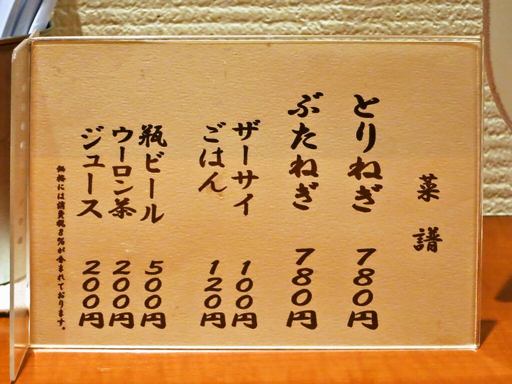 菜譜
とりねぎ 780円
ぶたねぎ 780円
ザーサイ 100円
ごはん 120円
瓶ビール 500円
ウーロン茶 200円
ジュース 200円
価格には消費税8%が含まれております。